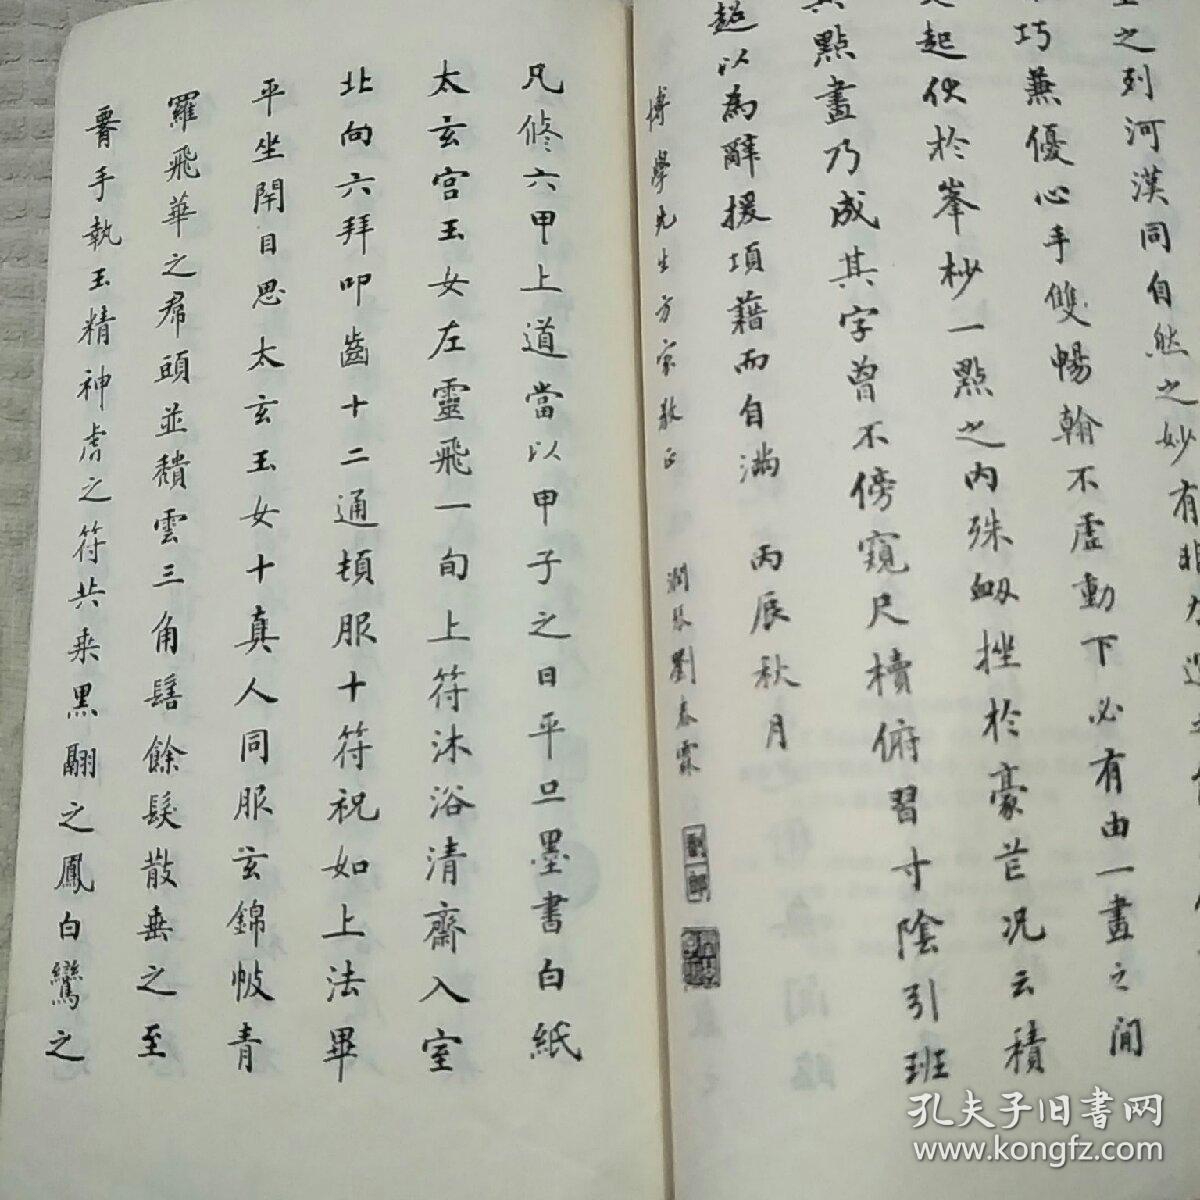 之列河漢同自然之妙有非力運之
巧兼優心手雙暢翰不虛動下必有由一畫之間
起伏於峯杪一點之內殊衂挫於豪芒況云積
點畫乃成其字曾不傍窺尺櫝俯習寸陰引班
超以為辭援項藉而自滿 丙辰秋月
博學先生方家教正 潤琴劉春霖
凡修六甲上道當以甲子之日平旦墨書白紙
太玄宮玉女左靈飛一旬上符沐浴清齋入室
北向六拜叩齒十二通頓服十符祝如上法畢
平坐閉目思太玄玉女十真人同服玄錦帔青
羅飛華之帬頭並穨雲三角髻餘髮散垂之至
臀手執玉精神虎之符共乘黑翮之鳳白鸞之
孔夫子旧书网
www.kongfz.com